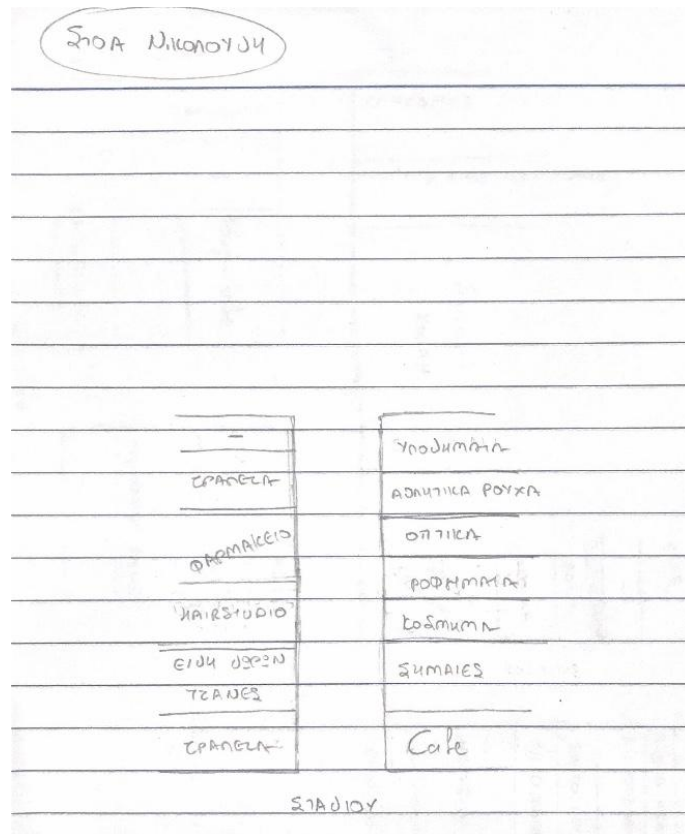 ΣΤΟΑ ΝΙΚΟΛΟΥΔΗ
-
ΤΡΑΠΕΖΑ
ΦΑΡΜΑΚΕΙΟ
HAIRSTUDIO
ΕΙΔΗ ΔΩΡΩΝ
ΤΣΑΝΕΣ
ΤΡΑΠΕΖΑ
ΥΠΟΔΗΜΑΤΑ
ΑΘΛΗΤΙΚΑ ΡΟΥΧΑ
ΟΠΤΙΚΑ
ΡΟΦΗΜΑΤΑ
ΚΟΣΜΗΜΑ
ΣΗΜΑΙΕΣ
Cafe
ΣΤΑΔΙΟΥ